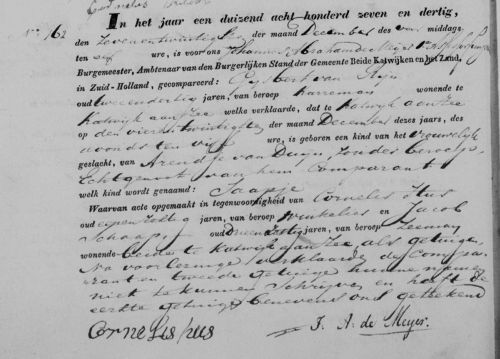 N° 162
In het jaar een duizend acht honderd zeven en dertig,
den Zeven en twintigsten der maand December des voor middags
ten elf ure, is voor ons Johannes Abraham de Meijer
Burgemeester, Ambtenaar van den Burgerlijken Stand der Gemeente Beide Katwijken en het Zand,
in Zuid-Holland, gecompareerd: van
oud twee en dertig jaren, van beroep wonende te
Katwijk aan Zee welke verklaarde, dat te Katwijk aan Zee
op den vier en twintigsten der maand December dezes jaars, des
avonds ten vijf ure, is geboren een kind van het vrouwelijk
geslacht, van Arendje van Duijn, zonder beroep,
Echtgenoot van hem Comparant
welk kind wordt genaamd: Jaapje
Waarvan acte opgemaakt in tegenwoordigheid van Cornelis
oud jaren, van beroep Winkelier en Jacob
Schaap, oud jaren, van beroep Zeeman
wonende beide te Katwijk aan Zee, als getuigen,
Na voorlezing verklaarde de Compa-
rant en tweede getuige hunne namen
niet te kunnen schrijven en heeft de
eerste getuige benevens ons getekend
Cornelis
J. A. de Meijer.